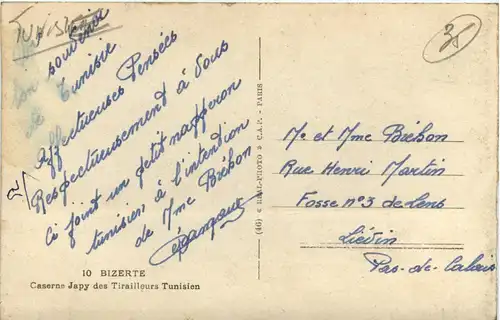 TUNISIE
Bon souvenir
de Tunisie
Affectueuses Pensées
Respectueusement à Vous
Ci joint un petit napperon
tunisien à l'intention
de Mme Bréhon
10 BIZERTE
Caserne Japy des Tirailleurs Tunisien
(46) « REAL-PHOTO » C.A.P. - PARIS
35
Mr et Mme Bréhon
Rue Henri Martin
Fosse n°3 de Lens
Liévin
Pas-de-Calais